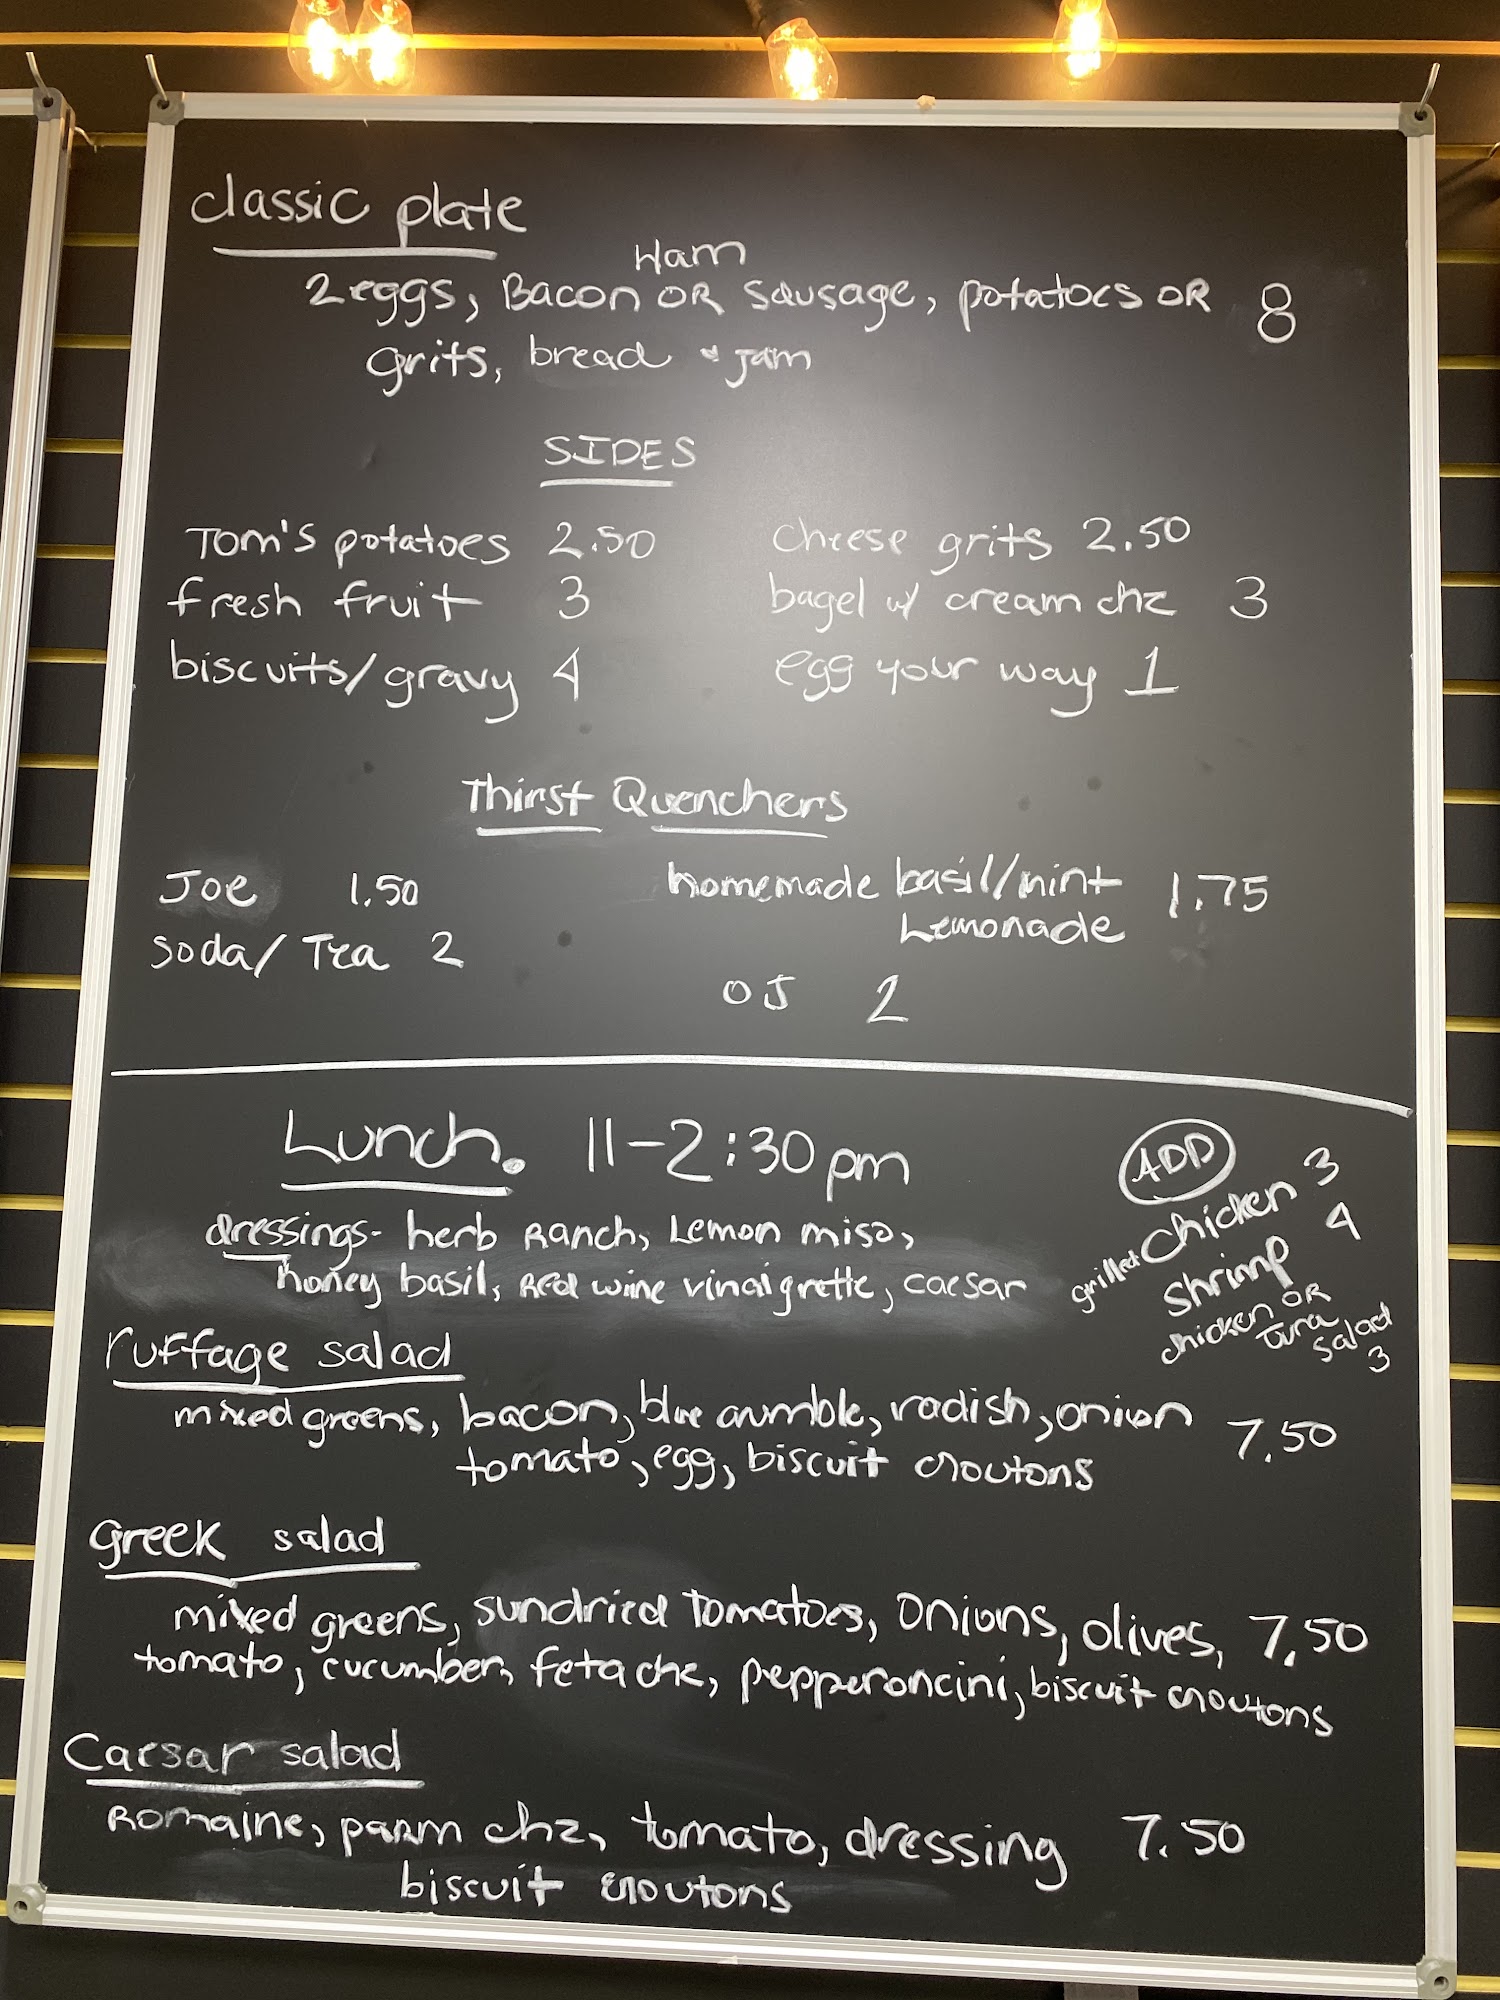 classic plate
Ham
2 eggs, Bacon OR sausage, potatoes OR 8
grits, bread & jam
SIDES
Tom's potatoes 2.50 cheese grits 2.50
fresh fruit 3 bagel w/ cream chz 3
biscuits/gravy 4 egg your way 1
Thirst Quenchers
Joe 1.50 homemade basil/mint 1.75
Lemonade
soda/Tea 2
OJ 2
Lunch. 11-2:30pm
ADD
grilled chicken 3
shrimp 4
chicken OR
tuna
salad
3
dressings- herb Ranch, Lemon miso,
honey basil, Red wine vinaigrette, caesar
ruffage salad
mixed greens, bacon, blue crumble, radish, onion 7.50
tomato, egg, biscuit croutons
greek salad
mixed greens, sundried tomatoes, onions, olives, 7.50
tomato, cucumber, feta chz, pepperoncini, biscuit croutons
Caesar salad
Romaine, parm chz, tomato, dressing 7.50
biscuit croutons